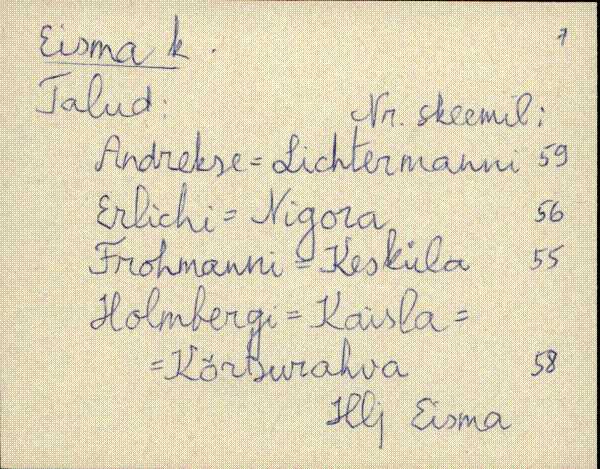 Eisma k.
1
Talud:
Nr. skeemil:
Andrekse = Lichtermanni 59
Erlichi = Nigora 56
Frohmanni = Kesküla 55
Holmbergi = Kaisla =
= Kõrtsurahva 58
Hlj Eisma